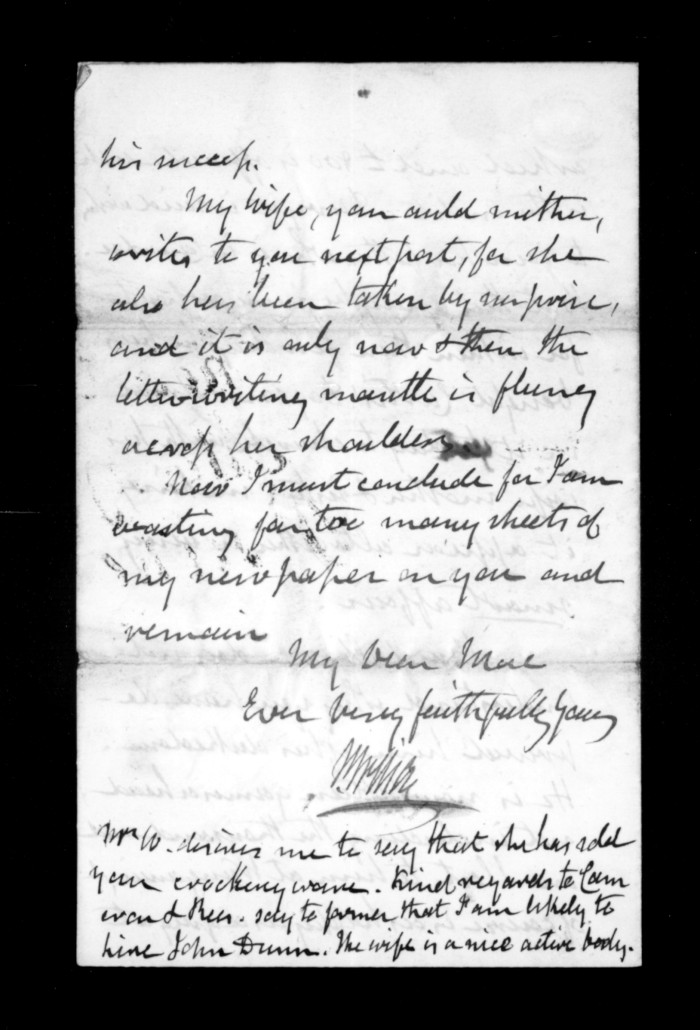 his success.
My wife, your auld mither,
writes to you next post, for she
also has been taken by surprise,
and it is only now & then the
letterwriting mantle is flung
across her shoulders
Now I must conclude for I am
wasting far too many sheets of
my new paper on you and
remain
My Dear Mac
Ever very faithfully yours
Mrs W. desires me to say that she has sold
your crockery ware. Kind regards to Cam
eron & Rees. say to former that I am likely to
hire John Dunn. The wife is a nice active body.